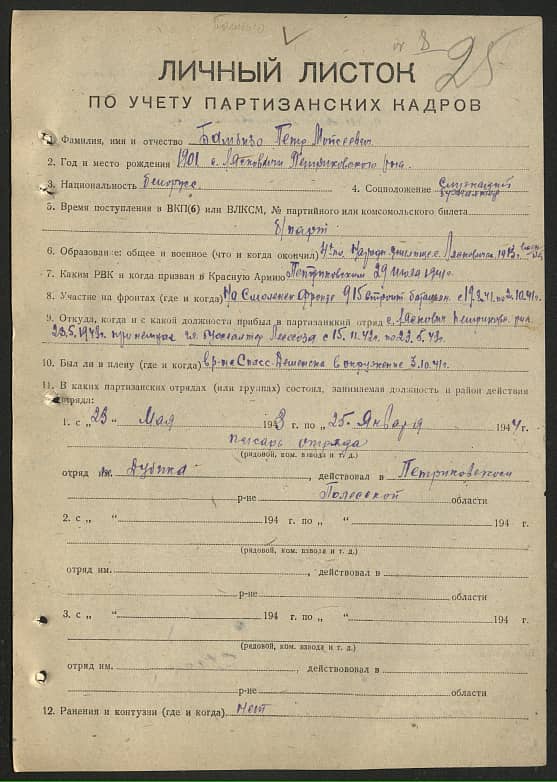 № 8
25
ЛИЧНЫЙ ЛИСТОК
ПО УЧЕТУ ПАРТИЗАНСКИХ КАДРОВ
1. Фамилия, имя и отчество Бамбизо Петр Моисеевич
2. Год и место рождения 1901 с. Ляховичи Петриковского р-на.
3. Национальность Белорус 4. Соцположение Служащий
бухгалтер
5. Время поступления в ВКП(б) или ВЛКСМ, № партийного или комсомольского билета
б/парт
6. Образование: общее и военное (что и когда окончил) Народн училище с. Ляховичи 1913
7. Каким РВК и когда призван в Красную Армию Петриковским 29 июля 1941г.
8. Участие на фронтах (где и когда) На Смоленск фронте 915 строит батальон. с 19.8.41 по 2.10.41г.
9. Откуда, когда и с какой должности прибыл в партизанский отряд с. Ляхович Петриковс. рна
23.5.1943г. при немцах бухгалтер Лесхоза с 15.11.42г. по 23.5.43г.
10. Был ли в плену (где и когда) в р-не Спасс-Деменска в окружение 3.10.41г.
11. В каких партизанских отрядах (или группах) состоял, занимаемая должность и район действия
отряда:
1. с „23 “ Мая 1943 г. по „25„ Января 1944 г.
писарь отряда
(рядовой, ком. взвода и т. д.)
отряд им. Дубика, действовал в Петриковском
р-не Полесской области
2. с „ “ 194 г. по „ “ 194 г.
(рядовой, ком. взвода и т. д.)
отряд им. , действовал в
р-не области
3. с „ “ 194 г. по „ “ 194 г.
(рядовой, ком. взвода и т. д.)
отряд им. , действововал в
р-не области
12. Ранения и контузии (где и когда) нет